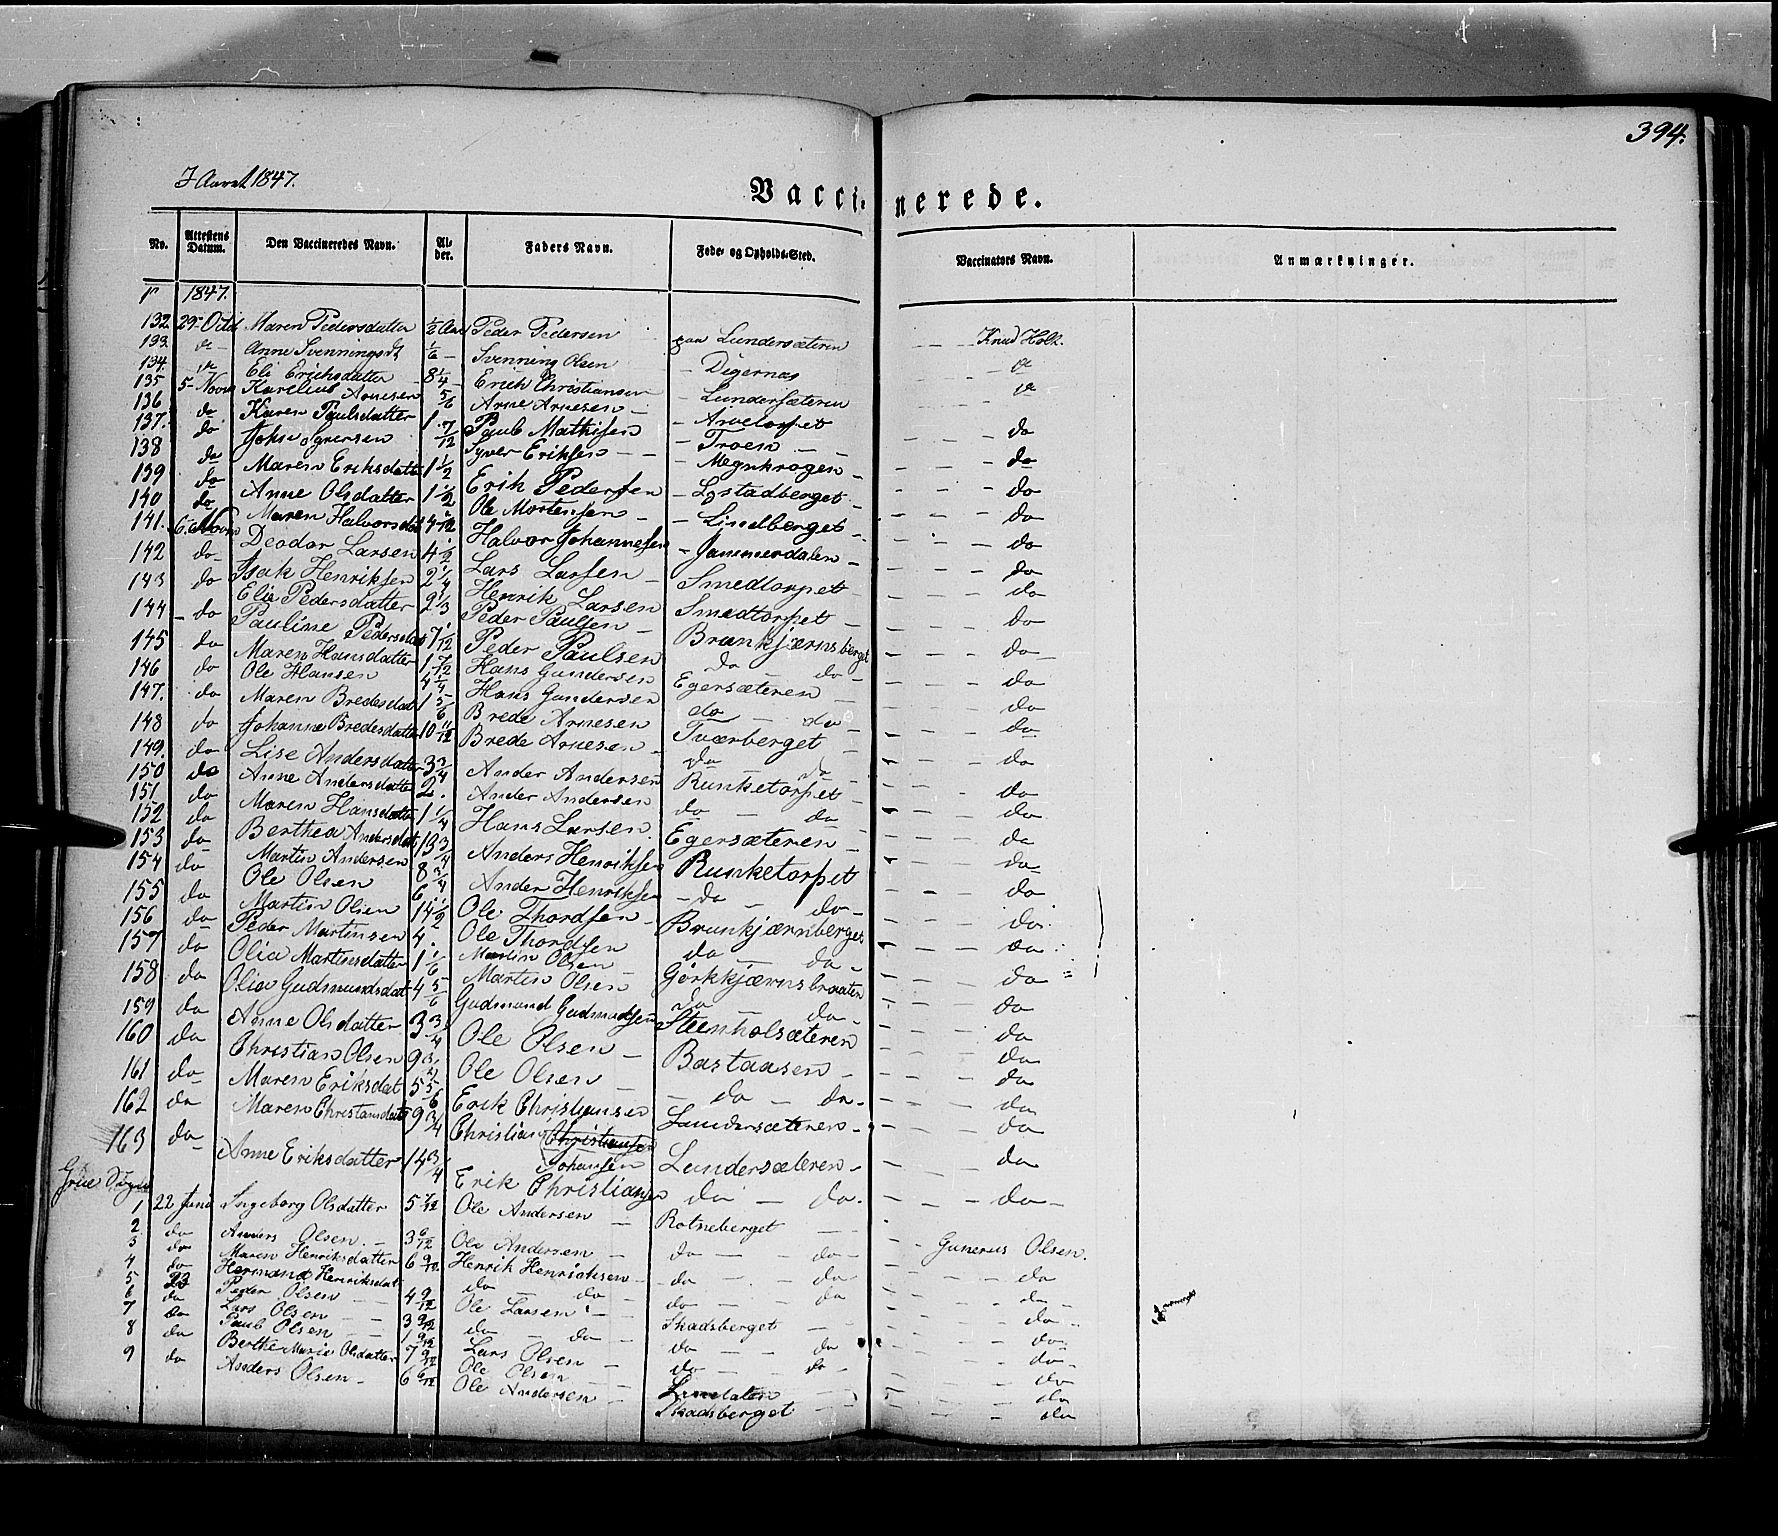 394.
I Aaret 1847.
Vaccinerede.
No. Attestens Datum. Den Vaccineredes Navn. Alder. Faders Navn. Føde- og Opholds-Sted. Vaccinators Navn. Anmærkninger.
1847.
132 29 Octb Maren Pedersdatter ½ Aar Peder Pedersen paa Lundersæteren Knud Holt.
133 Anne Svenningsdt 1/6 Svenning Olsen Digernæs
134 Eli Erichsdatter 8 ¼ Erich Christiansen Lundersæteren
135 5 Novm Karelius Arnesen 5/6 Arne Arnesen Arvetorpet do
136 do Karen Paulsdatter 1 7/12 Paul Mathisen Troen do
137 do John Syversen Syver Eriksen Megnkrogen do
138 do Maren Eriksdatter 1 ½ Erik Pedersen Lystadberget do
139 do Anne Olsdatter 1 ½ Ole Mortensen Lindberget do
140 do Maren Halvorsdat 4 1/12 Halvor Johannesen Jammerdalen do
141. 6 Novm Deodor Larsen 4 ½ Lars Larsen Smedtorpet do
142 do Isak Henriksen 2 ¼ Henrik Larsen Smedtorpet do
143 do Elie Pedersdatter 2 1/3 Peder Paulsen Brunkjærnsberget do
144 do Pauline Pedersdat 7 1/12 Peder Paulsen do do do
145 do Maren Hansdatter 1 7/12 Hans Gundersen Egersæteren do
146 do Ole Hansen 4 ¼ Hans Gundersen do do do
147. do Maren Bredesdat 1 5/6 Brede Arnesen Tværberget do
148 do Johanne Bredesdatter 10 11/12 Brede Arnesen do do do
149. do Lise Andersdatter 3 ¾ Ander Andersen Runketorpet do
150 do Anne Andersdatter 2. Ander Andersen do do do
151 do Maren Hansdatter 1 ¼ Hans Larsen Egersæteren do
152 do Berthea Andersdat 13 ¾ Anders Henriksen Runketorpet do
153 do Martin Andersen 8 ¾ Ander Henriksen do do do
154 do Ole Olsen 6 Ole Thordsen Brunkjærnberget do
155 do Martin Olsen 14 ½ Ole Thordsen do do do
156 do Peder Martinsen 4. Martin Olsen Gjørkkjærnsbraaten do
157 do Olia Martinsdatter 1 1/6 Martin Olsen do do do
158 do Olia Gudmundsdat 4 5/6 Gudmund Gudmundsen Steenholsæteren do
159 do Anne Olsdatter 3 ¾ Ole Olsen Bastaasen do
160 do Christian Olsen 9 Ole Olsen do do do
161 do Maren Eriksdat 5 5/6 Erik Christiansen Lundersæteren do
162 do Maren Christiansdat 9 ¾ Christian Christiansen Johansen Lundersæteren do
163 do Anne Eriksdatter 14 ¾ Erik Christiansen do do do
Grue Sogn
1 22 Juni Ingeborg Olsdatter 5 Ole Andersen Rotneberget Gunerus Olsen.
2 do Anders Olsen 3 6/12 Ole Andersen do do do
3 do Maren Henriksdatter 6 9/12 Henrik Henrichsen do do do
4 do Hermand Henriksdat do do do do do
5 23 Peder Olsen 4 9/12 Ole Larsen Skadsberget do
6 do Lars Olsen 3 9/12 do do do do do
7 do Paul Olsen 1 9/12 Lars Olsen do do do
8 do Berthe Marie Olsdatter 7 9/12 Ole Olsen do
9 do Anders Olsen 6 6/12 Ole Andersen Skadsberget do